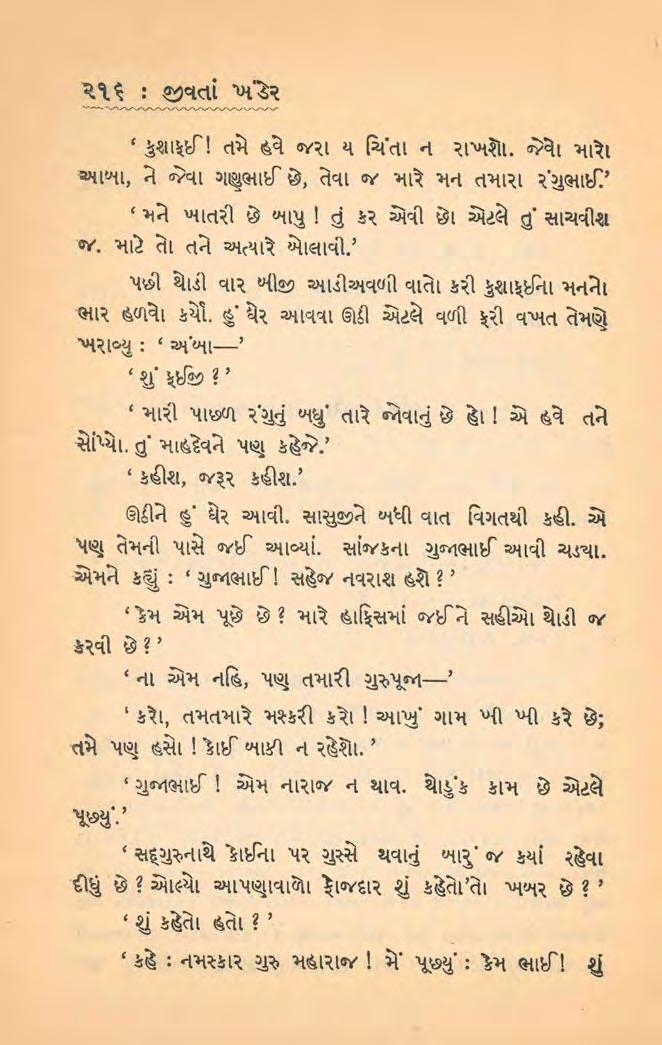 ૨૧૬ : જીવતાં ખંડેર
‘ કુશાફઈ! તમે હવે જરા ય ચિંતા ન રાખશો. જેવો મારો
આબા, ને જેવા ગણુભાઈ છે, તેવા જ મારે મન તમારા રંગુભાઈ.’
‘ મને ખાતરી છે બાપુ ! તું કર એવી છો એટલે તું સાચવીશ
જ. માટે તો તને અત્યારે બોલાવી.’
પછી થોડી વાર બીજી આડીઅવળી વાતો કરી કુશાફઈના મનનો
ભાર હળવો કર્યો. હું ઘેર આવવા ઊઠી એટલે વળી ફરી વખત તેમણે
ખરાવ્યુ : ‘ અંબા—’
‘ શું ફઈજી ? ’
‘ મારી પાછળ રંગુનું બધું તારે જોવાનું છે હો ! એ હવે તને
સોંપ્યો. તું માહદેવને પણ કહેજે.’
‘ કહીશ, જરૂર કહીશ.’
ઊઠીને હું ઘેર આવી. સાસુજીને બધી વાત વિગતથી કહી. એ
પણ તેમની પાસે જઈ આવ્યાં. સાંજકના ગુજાભાઈ આવી ચડ્યા.
એમને કહ્યું : ‘ ગુજાભાઈ ! સહેજ નવરાશ હશે ? ’
‘ કેમ એમ પૂછે છે ? મારે હાફિસમાં જઈને સહીઓ થોડી જ
કરવી છે ? ’
‘ ના એમ નહિ, પણ તમારી ગુરુપૂજા—’
‘ કરો, તમતમારે મશ્કરી કરો ! આખું ગામ ખી ખી કરે છે;
તમે પણ હસો ! કોઈ બાકી ન રહેશો. ’
‘ ગુજાભાઈ ! એમ નારાજ ન થાવ. થોડુંક કામ છે એટલે
પૂછ્યું.’
‘ સદ્ગુરુનાથે કોઈના પર ગુસ્સે થવાનું બારું જ ક્યાં રહેવા
દીધું છે ? ઓલ્યો આપણાવાળો ફોજદાર શું કહેતો’તો ખબર છે ? ’
‘ શું કહેતો હતો ? ’
‘ કહે : નમસ્કાર ગુરુ મહારાજ ! મેં પૂછ્યું : કેમ ભાઈ ! શું